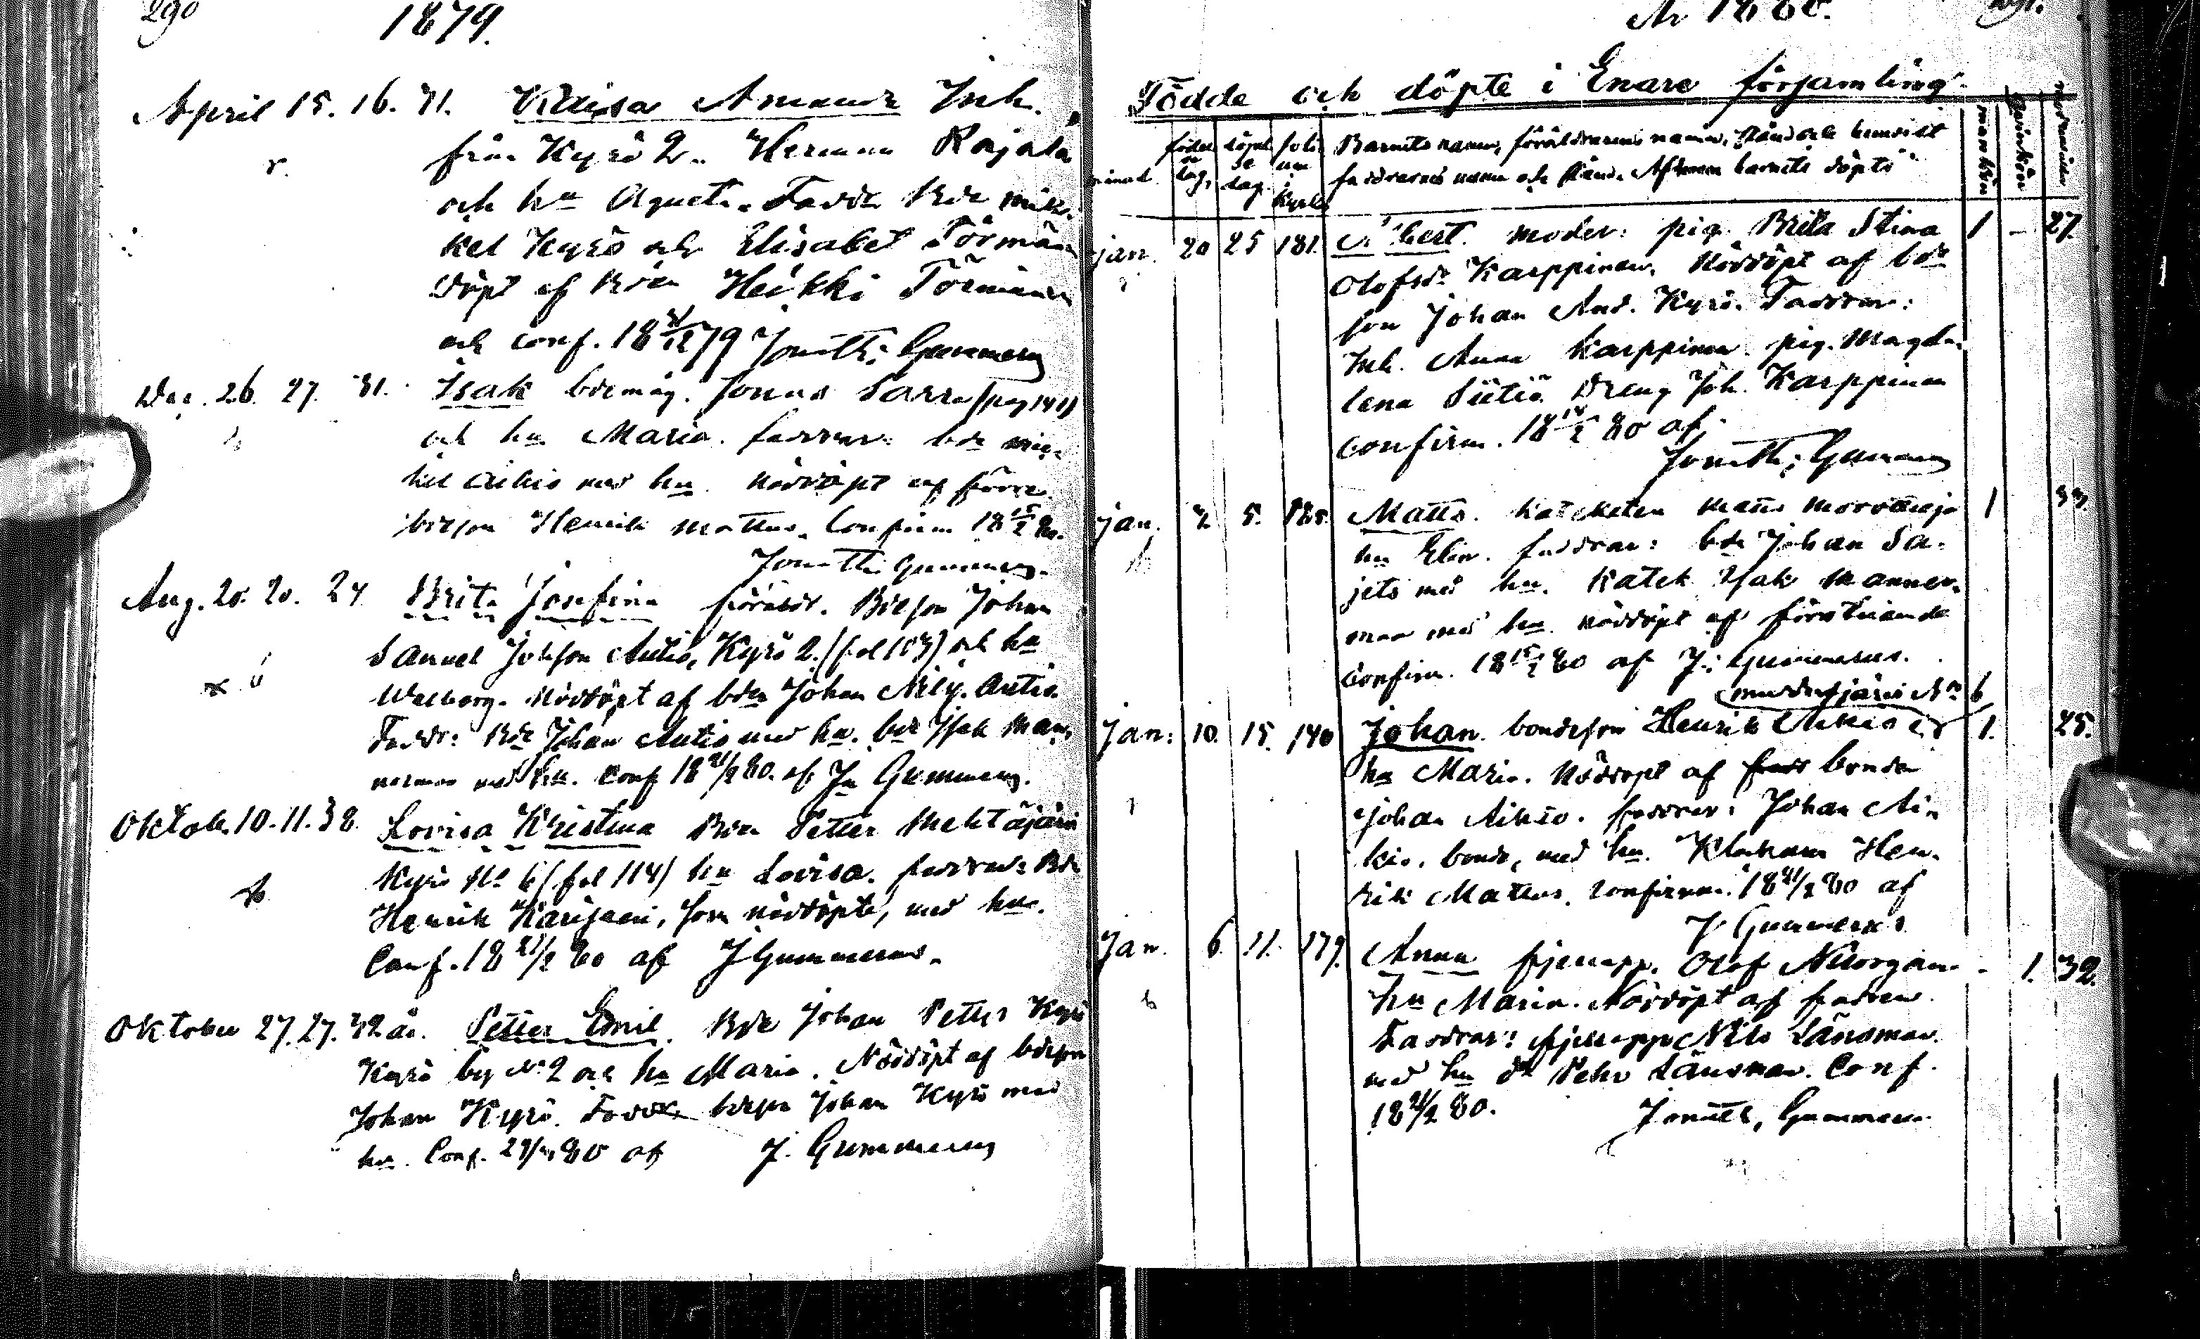 290
1879.
April 15. 16. 31. Kaisa Amanda Inh.
från Kyrö 2. Herman Rajala
och hu Agneta. Faddr Bde Mik
kel Kyrö och Elisabet Törmän
döpt af Bden Heikki Törmänen
och conf. 18 /12 79 Jonath: Gummerus
Dec. 26. 27. 31. Isak bdemåg. Jonas Sarre (pag 141)
och hu Maria. faddrar: bde mic
kel Aikio med hu. Nöddöpt af förre
bdeson Henrik Mattus. Confirm 18 15/2 80.
Jonath Gummerus.
Aug. 20. 20. 24 Brita Josefina föräldr. Bdeson Johan
Samuel Johsson Autio, Kyrö 2. (fol 103) och hu
Walborg. Nöddöpt af bden Johan Autio.
Faddr: Bde Johan Autio med hu. bde Isak Man
nermaa med hu. Conf 18 21/2 80. af Jn Gummerus.
Oktob. 10. 11. 38. Lovisa Kristina Bde Petter Mehtäjärvi
Kyrö No 6 (fol 114) hu Lovisa. faddrar: Bde
Henrik Karijärvi, som nöddöpte, med hu.
Conf. 18 21/2 80 af J Gummerus.
Oktober 27. 27. 42 år. Petter Emil. Bde Johan Petter Kyrö
Kyrö by No 2 och hu Maria. Nöddöpt af bdeson
Johan Kyrö. Fadd bdeson Johan Kyrö med
hu. Conf. 80 af J. Gummerus
År 1880.
Födde och döpte i Enare församling.
månad. födel se dag. döpel se dag. folium i kyrkb Barnets namn, föräldrarnes namn, stånd och hemvist
faddrarnes namn och stånd. Af hvem barnets döpts mankön qvinkön
jan. 20 25 181. Albert. moder: pig. Brita Stina 1 - 27.
Olofsdr Karppinen. Nöddöpt af bde
son Johan And. Kyrö. Faddrar:
Inh. Anna Karppinen. pig. Magda
lena Dreng Joh. Karppinen
confirm. 18 15/2 80 af:
Jonath: Gummerus
jan. 2 5. 185. Matts. Kateketen Matts Morottaja 1 33.
hu Elin. faddrar: bde Johan Sa-
jets med hu. Katek Isak Manner-
maa med hu. nöddöpt af förstnämnde
confirm. 18 15/2 80 af J: Gummerus.
Jan: 10. 15. 140 Johan. bondeson Henrik Aikio 1. 25.
hu Maria. Nöddöpt af bonden
Johan Aikio. faddrar: Johan Ai-
kio. bonde, med hu. Klockare Hen-
rik Mattus. Confirm. 18 21/2 80 af
J Gummerus
Jan 6. 11. 179. Anna fjellapp. Olof Nuorgam - 1. 32.
hu Maria. Nöddöpt af fadren.
Faddrar: fjellapp Nils Länsman.
med hu dr Pehr Länsman. Conf.
18 21/2 80. Jonath, Gummerus